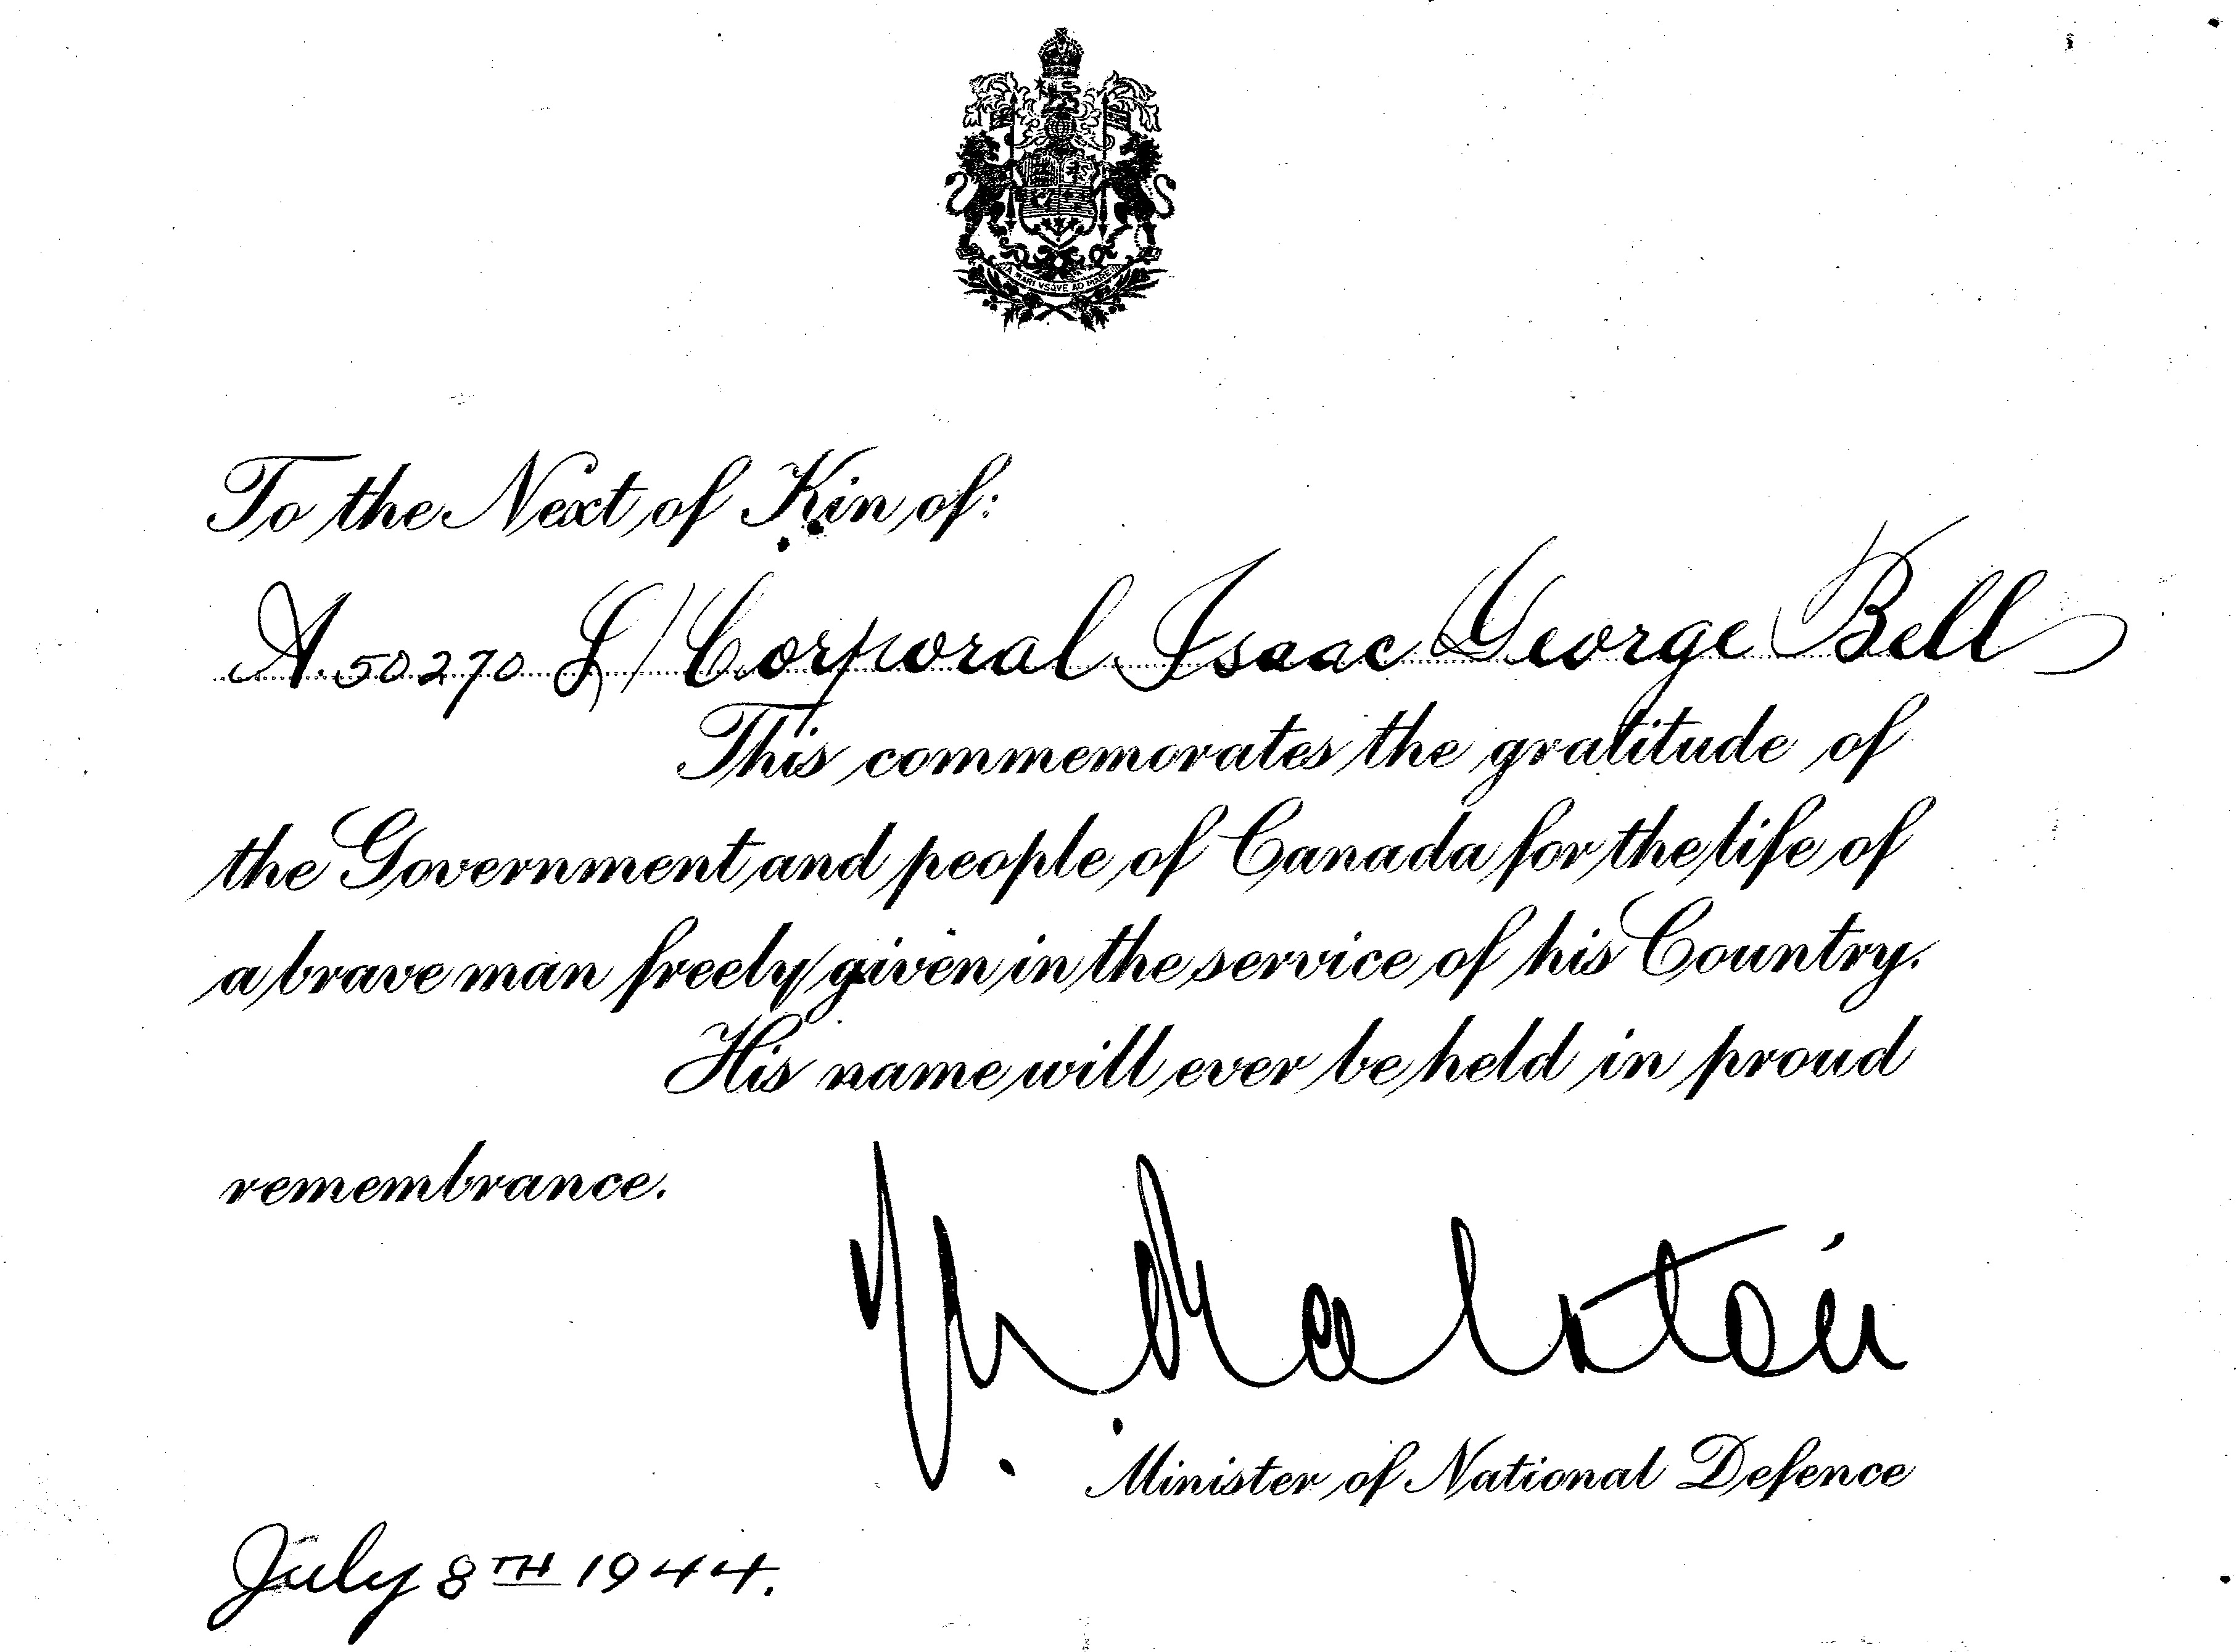 A MARI VSQVE AD MARE
To the Next of Kin of:
A.50270 L/Corporal Isaac George Bell
This commemorates the gratitude of
the Government and people of Canada for the life of
a brave man freely given in the service of his Country.
His name will ever be held in proud
remembrance.
Ralston
Minister of National Defence
July 8TH 1944.